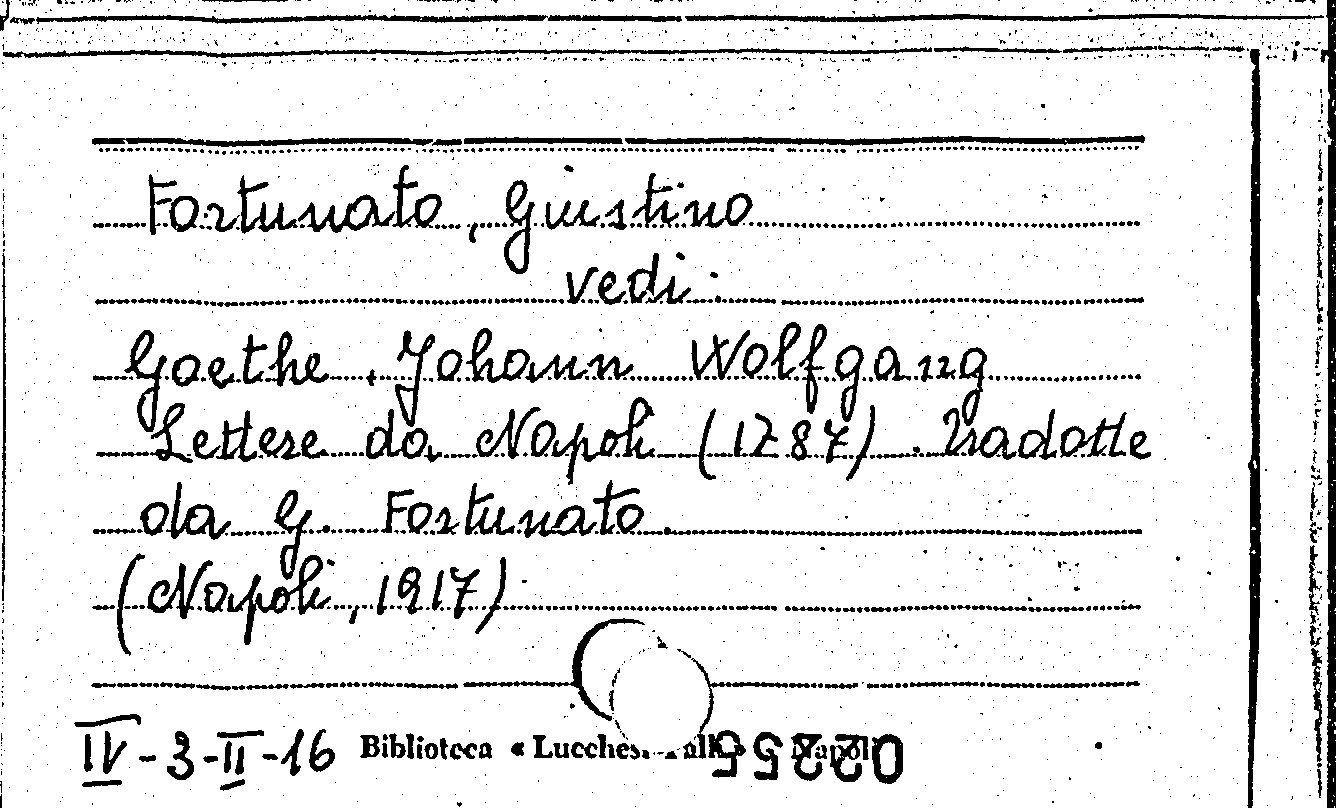 Fortunato, Giustino
vedi:
Goethe, Johann Wolfgang
Lettere da Napoli (1787). Tradotte
da G. Fortunato.
(Napoli, 1917)
IV-3-II-16 Biblioteca « Lucches